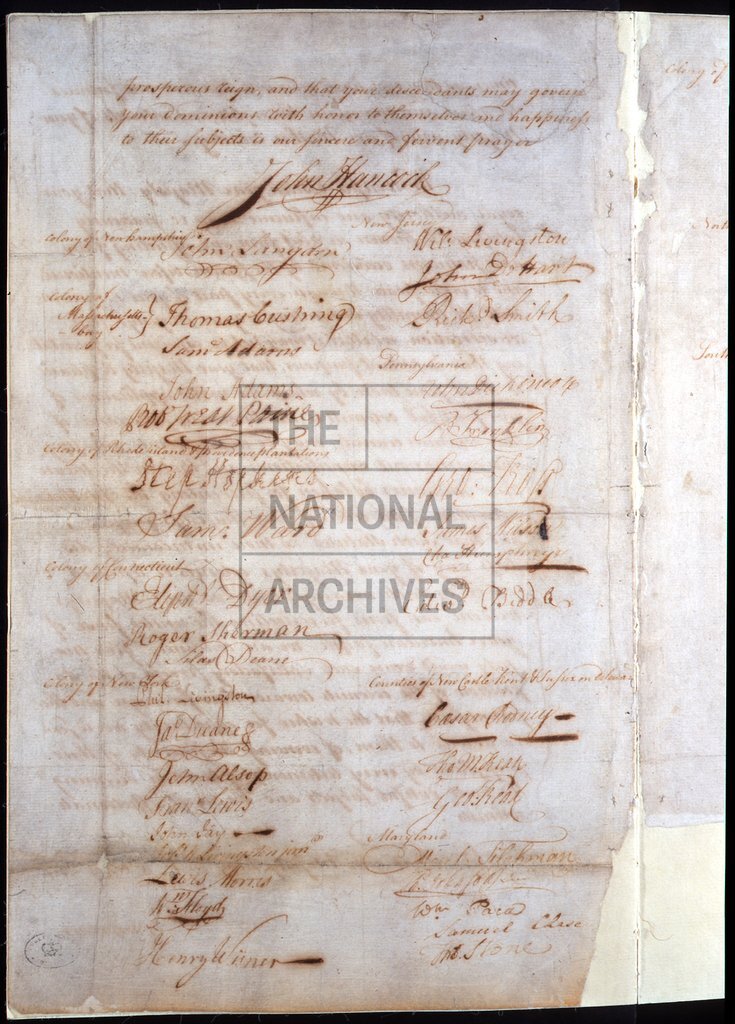 prosperous reign, and that your descendants may govern
your dominions with honor to themselves and happiness
to their subjects is our sincere and fervent prayer
John Hancock
Colony of New hampshire
John Langdon
Colony of
Massachusetts
bay
Thomas Cushing
Saml Adams
John Adams
Rob Treat Paine
Colony of Rhode island & providence plantations
Step Hopkins
Sam: Ward
Colony of Connecticut
Elipht Dyer
Roger Sherman
Silas Deane
Colony of New York
Phil. Livingston
Jas Duane
John Alsop
Fran Lewis
John Jay
Livingston junr
Lewis Morris
Wm Floyd
Henry Wisner
New Jersey
Wil: Livingston
John D Hart
Richd Smith
Pennsylvania
John Dickinson
B Franklin
Geo: Ross
James Wilson
Cha Humphreys
Edwd Biddle
Counties of New Castle Kent & Sussex on Delaware
Caesar Rodney
Tho M:Kean
Geo Read
Maryland
Mat Tilghman
Wm Paca
Samuel Chase
Tho. Stone
Colony of
THE
NATIONAL
ARCHIVES